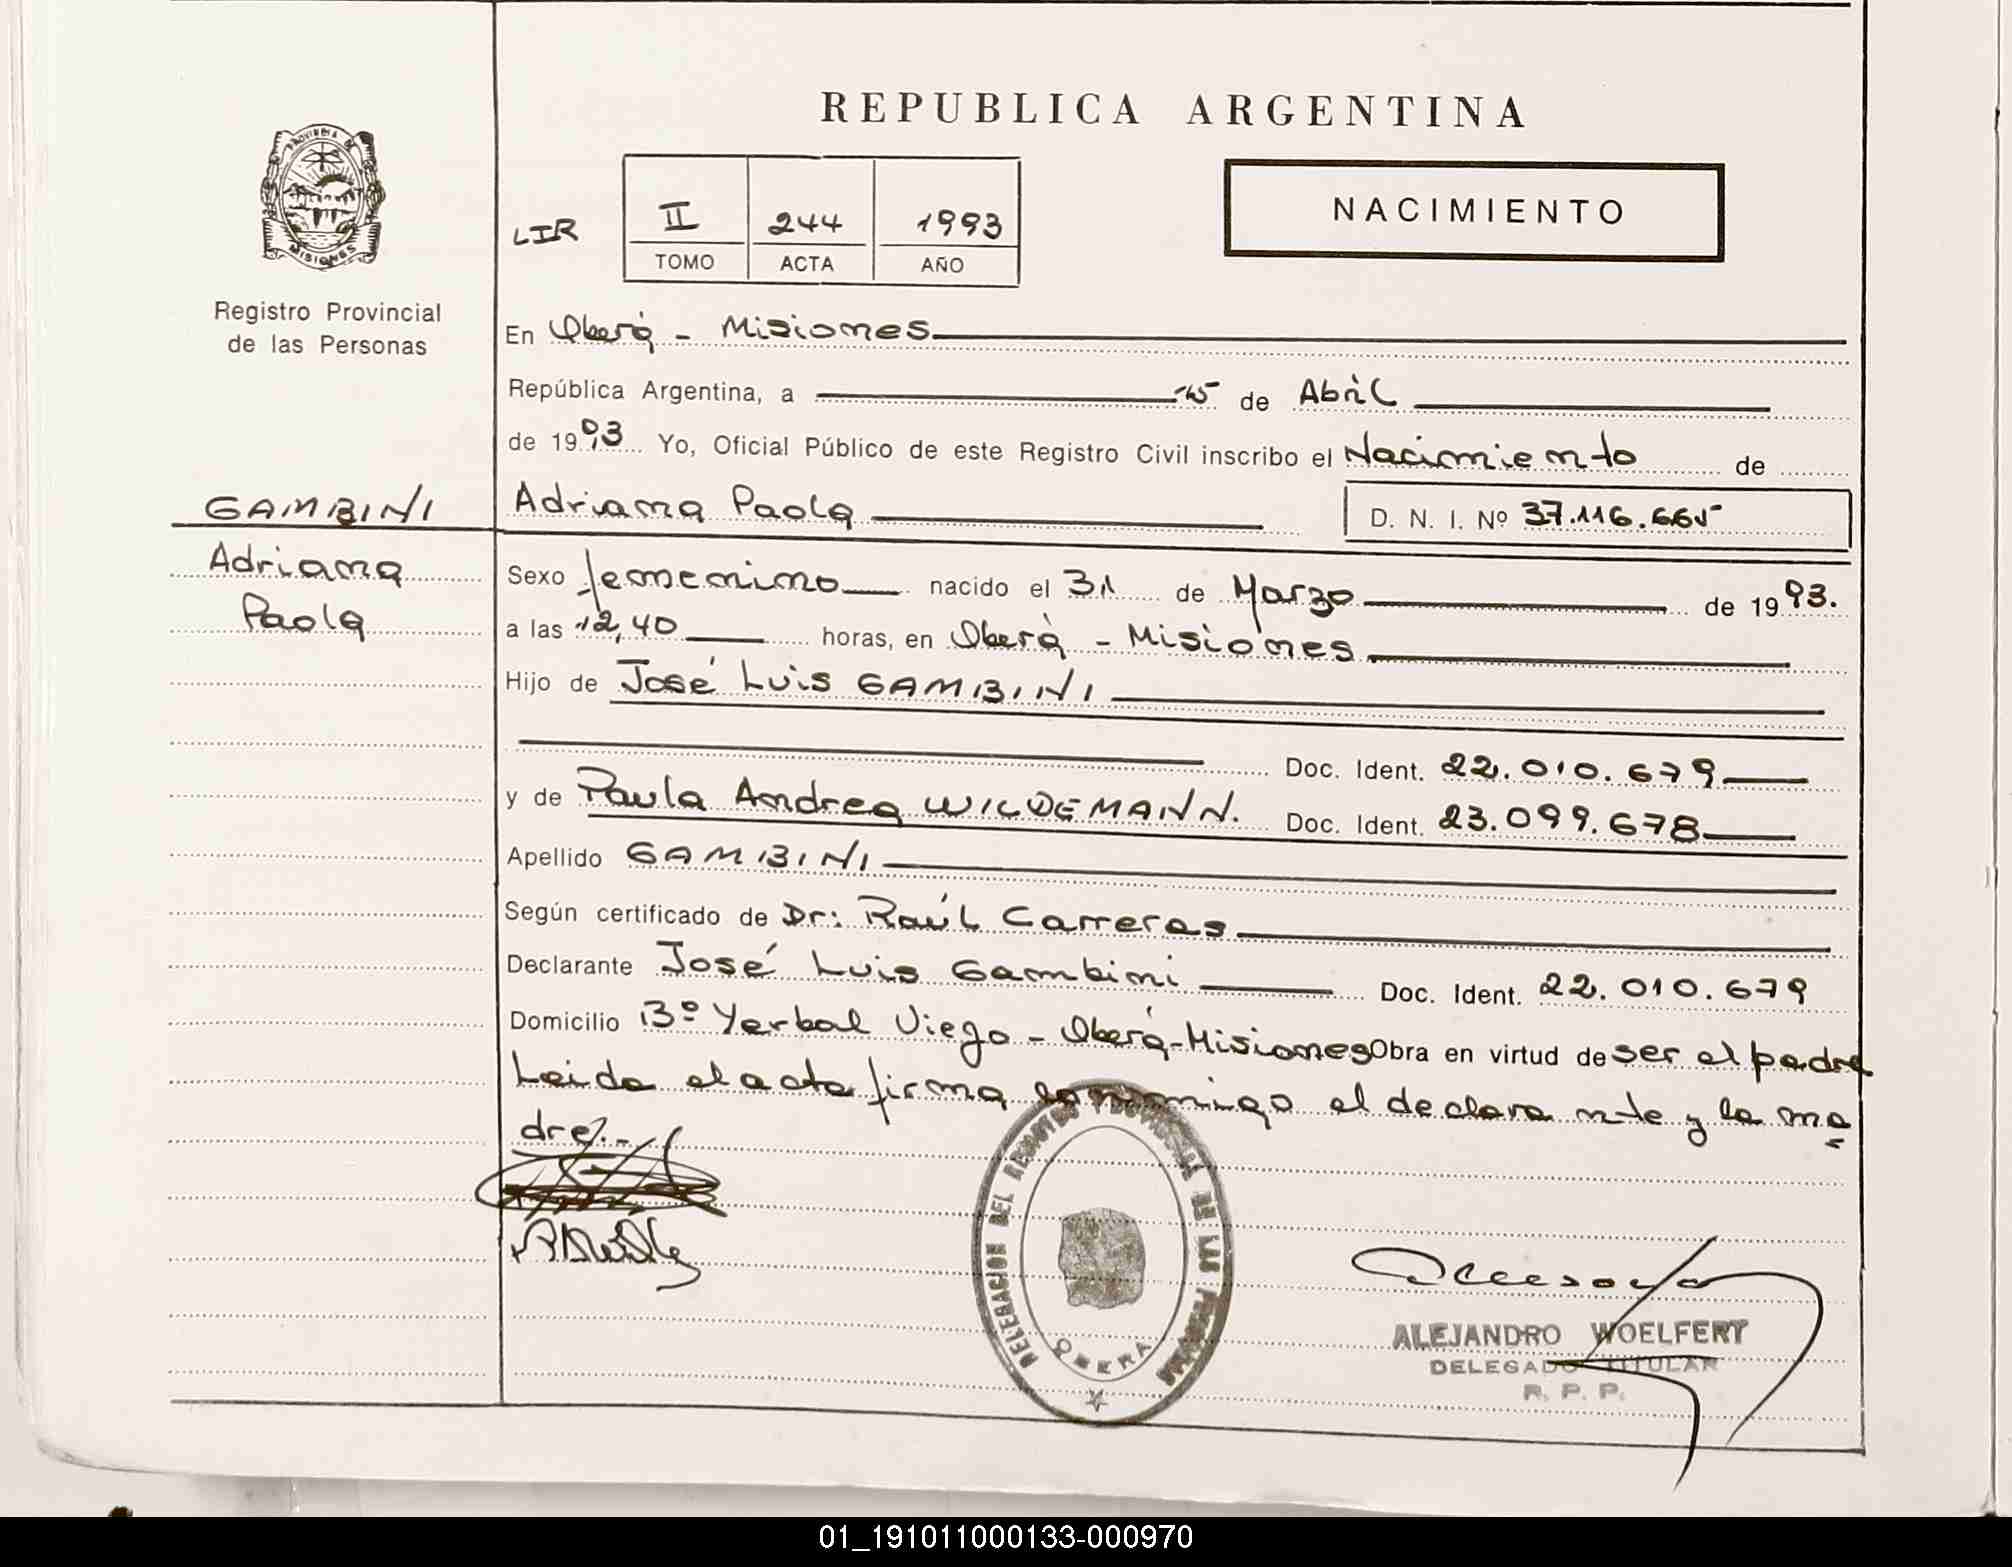 REPUBLICA ARGENTINA
PROVINCIA DE
MISIONES
Registro Provincial
de las Personas
LIR
II 244 1993
TOMO ACTA AÑO
NACIMIENTO
En Oberá - Misiones
República Argentina, a 15 de Abril
de 1993 Yo, Oficial Público de este Registro Civil inscribo el Nacimiento de
GAMBINI
Adriana Paola D. N. I. Nº 37.116.665
Adriana
Paola
Sexo femenino nacido el 31 de Marzo de 1993.
a las 12,40 horas, en Oberá - Misiones
Hijo de José Luis GAMBINI
Doc. Ident. 22.010.679
y de Paula Andrea WILDEMANN. Doc. Ident. 23.099.678
Apellido GAMBINI
Según certificado de Dr: Raúl Carreras
Declarante José Luis Gambini Doc. Ident. 22.010.679
Domicilio Bº Yerbal Viejo - Oberá-Misiones Obra en virtud de ser el padre
Leida el acta firma conmigo el declarante y la ma
dre.-
DELEGACION DEL REGISTRO PROVINCIAL DE LAS PERSONAS
OBERA
ALEJANDRO WOELFERT
DELEGADO TITULAR
R. P. P.
01_191011000133-000970